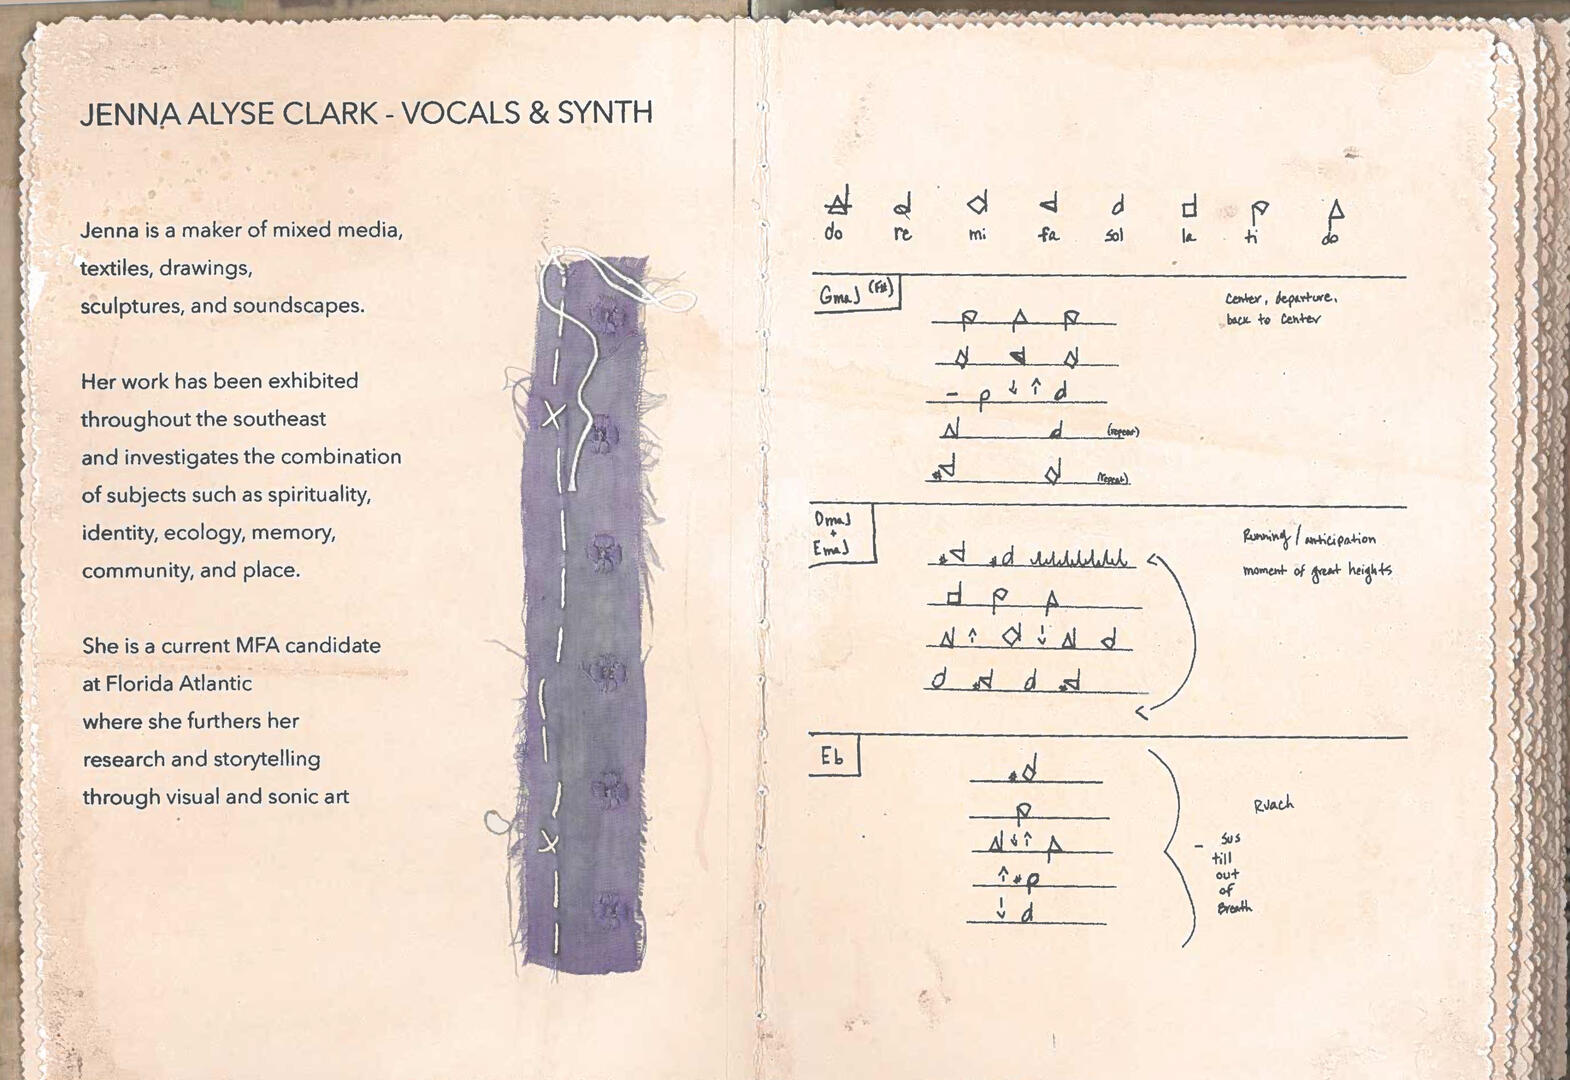 JENNA ALYSE CLARK - VOCALS & SYNTH
Jenna is a maker of mixed media,
textiles, drawings,
sculptures, and soundscapes.
Her work has been exhibited
throughout the southeast
and investigates the combination
of subjects such as spirituality,
identity, ecology, memory,
community, and place.
She is a current MFA candidate
at Florida Atlantic
where she furthers her
research and storytelling
through visual and sonic art
do re mi fa sol la ti do
Gmaj (F#)
center, departure,
back to center
(repeat)
(repeat)
Dmaj
+
Emaj
Running / anticipation
moment of great heights
Eb
Ruach
- sus
till
out
of
Breath